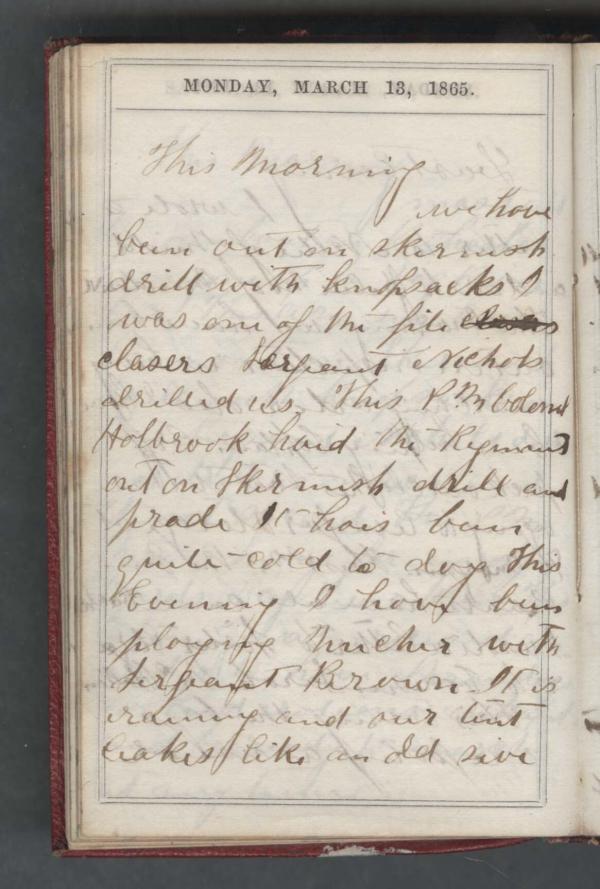 MONDAY, MARCH 13, 1865.
This Morning
we have
bein out on skirmish
drill with knapsacks I
was one of the file
closers Sergeant Nichols
drilled us. This P.M Colonel
Holbrook haid the Regment
out on Skirmish drill and
prade It hais bein
quite cold to day This
Evening I have bein
playing Eucher with
Sergeant Brown. It is
raining and our tent
leakes like an old sive